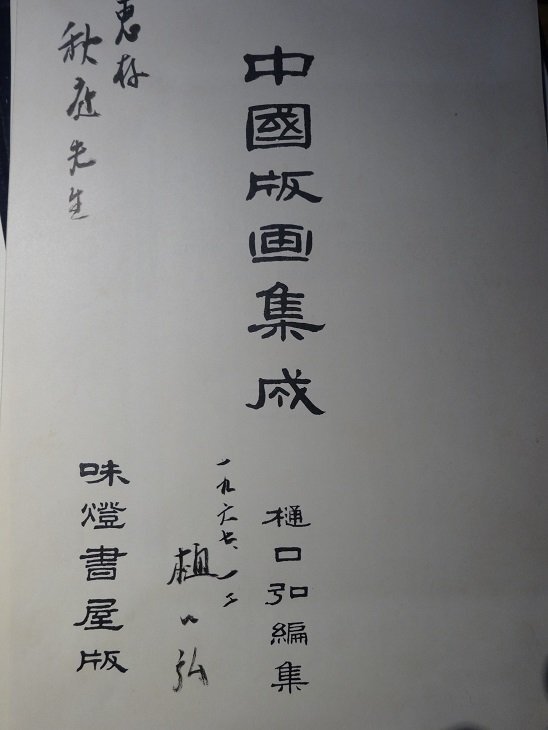 中國版画集成
樋口弘編集
一九六七、
樋口弘
惠存
秋庭先生
味燈書屋版